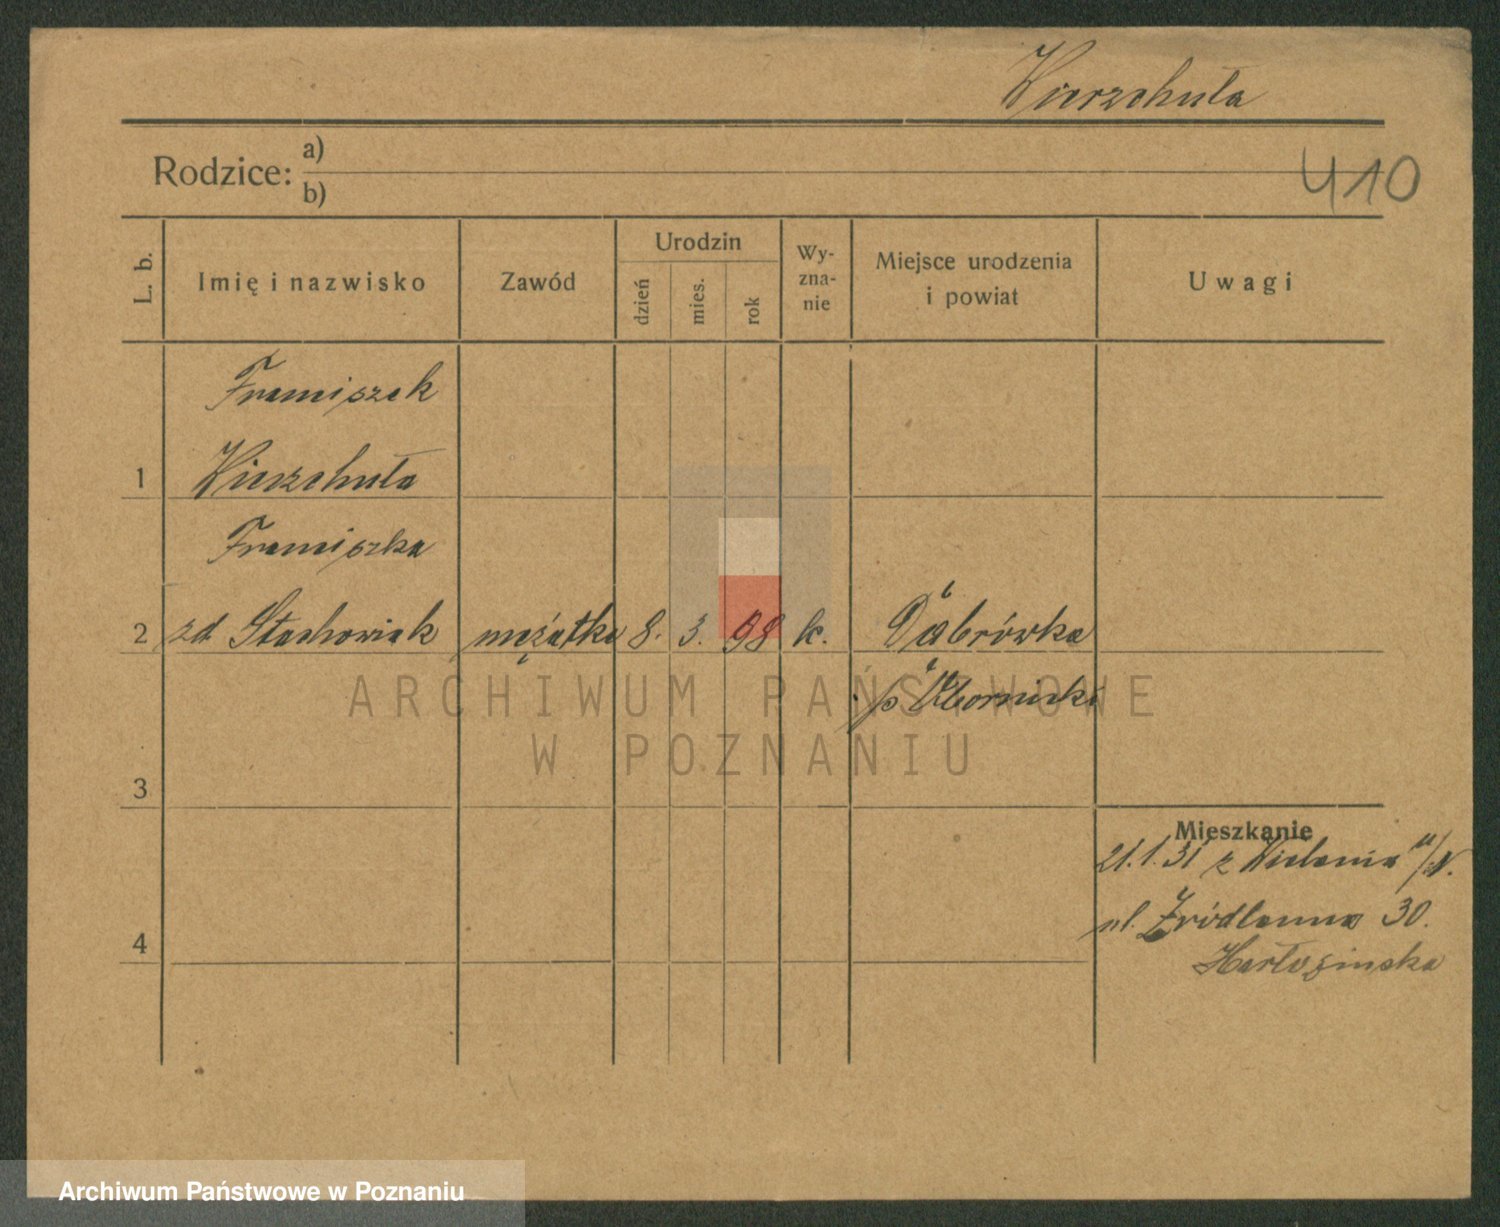 Wierzchuła
Rodzice:
a)
b)
410
L. b.
Imię i nazwisko
Zawód
Urodzin
dzień
mies.
rok
Wy-
zna-
nie
Miejsce urodzenia
i powiat
Uwagi
Franciszek
1 Wierzchuła
Franciszka
2 zd Stachowiak mężatka 8. 3. 98 k. Dąbrówka
p Obornicki
ARCHIWUM PAŃSTWOWE
W POZNANIU
3
Mieszkanie
21.1.31 z Wielenia n/N.
ul. Źródlanna 30.
4
Archiwum Państwowe w Poznaniu